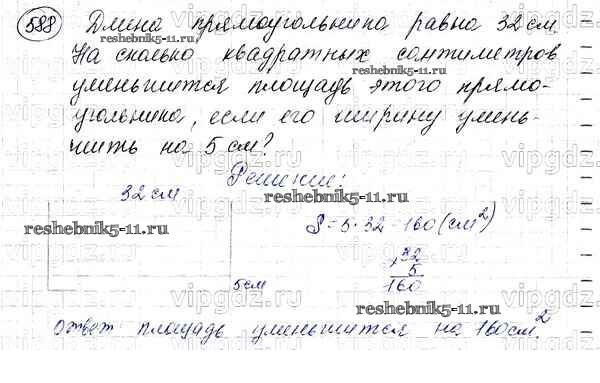 588 Длина прямоугольника равна 32 см.
На сколько квадратных сантиметров
уменьшится площадь этого прямо-
угольника, если его ширину умень-
шить на 5 см?
Решение:
32 см
S = 5 · 32 = 160 (см²)
32
5
160
5 см
Ответ: площадь уменьшится на 160 см².
reshebnik5-11.ru
reshebnik5-11.ru
reshebnik5-11.ru
reshebnik5-11.ru
reshebnik5-11.ru
vipgdz.ru